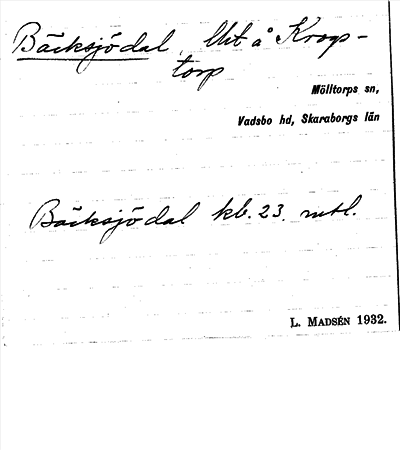 Bäcksjödal, Utt å Krogs-
torp
Mölltorps sn,
Vadsbo hd, Skaraborgs län
Bäcksjödal kb. 23. mtl.
L. MADSÉN 1932.